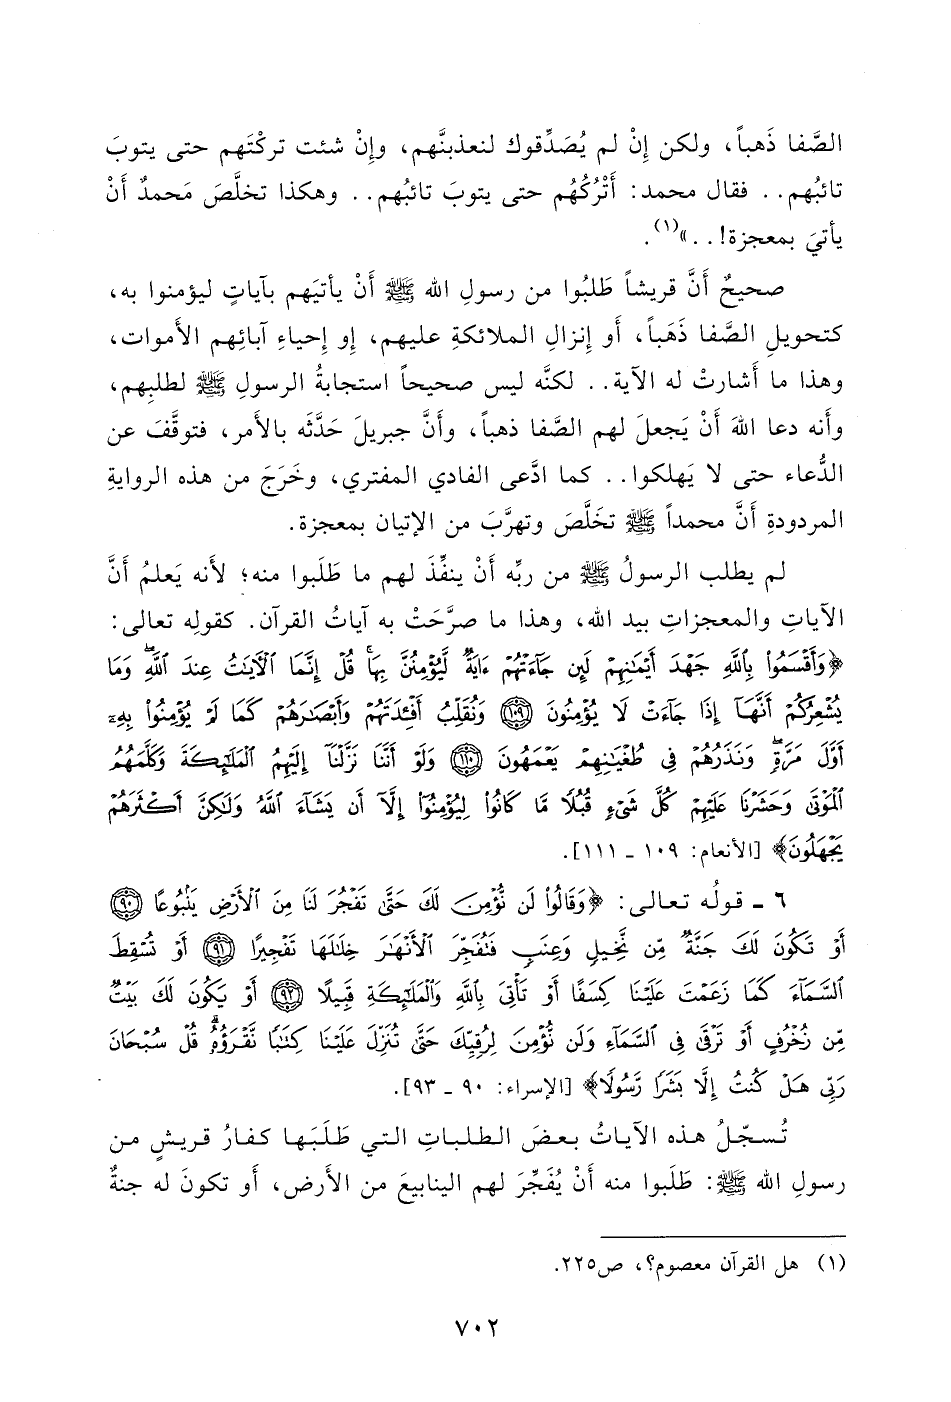 الصَّفا ذَهباً، ولكن إِنْ لم يُصَدِّقوك لنعذبنَّهم، وإِنْ شئت تركْتَهم حتى يتوبَ
تائبُهم.. فقال محمد: أَتْرُكُهُم حتى يتوبَ تائبُهم.. وهكذا تخلَّصَ مَحمدٌ أَنْ
يأتيَ بمعجزة!..»(١).
صحيحٌ أَنَّ قريشاً طَلبُوا من رسولِ الله ﷺ أَنْ يأتيَهم بآياتٍ ليؤمنوا به،
كتحويلِ الصَّفا ذَهَباً، أَو إِنزالِ الملائكةِ عليهم، إِو إِحياءِ آبائِهم الأَموات،
وهذا ما أَشارتْ له الآية.. لكنَّه ليس صحيحاً استجابةُ الرسولِ ﷺ لطلبِهم،
وأَنه دعا اللهَ أَنْ يَجعلَ لهم الصَّفا ذهباً، وأَنَّ جبريلَ حَدَّثَه بالأَمر، فتوقَّفَ عن
الدُّعاء حتى لا يَهلكوا.. كما ادَّعى الفادي المفتري، وخَرَجَ من هذه الروايةِ
المردودةِ أَنَّ محمداً ﷺ تخَلَّصَ وتهرَّبَ من الإتيان بمعجزة.
لم يطلب الرسولُ ﷺ من ربِّه أَنْ ينفِّذَ لهم ما طَلَبوا منه؛ لأَنه يَعلمُ أَنَّ
الآياتِ والمعجزاتِ بيد الله، وهذا ما صرَّحَتْ به آياتُ القرآن. كقولِه تعالى:
﴿وَأَقْسَمُوا۟ بِٱللَّهِ جَهْدَ أَيْمَٰنِهِمْ لَئِن جَآءَتْهُمْ ءَايَةٌ لَّيُؤْمِنُنَّ بِهَا ۚ قُلْ إِنَّمَا ٱلْءَايَٰتُ عِندَ ٱللَّهِ ۖ وَمَا
يُشْعِرُكُمْ أَنَّهَآ إِذَا جَآءَتْ لَا يُؤْمِنُونَ ١٠٩ وَنُقَلِّبُ أَفْـِٔدَتَهُمْ وَأَبْصَٰرَهُمْ كَمَا لَمْ يُؤْمِنُوا۟ بِهِۦٓ
أَوَّلَ مَرَّةٍ ۖ وَنَذَرُهُمْ فِى طُغْيَٰنِهِمْ يَعْمَهُونَ ١١٠ وَلَوْ أَنَّنَا نَزَّلْنَآ إِلَيْهِمُ ٱلْمَلَٰٓئِكَةَ وَكَلَّمَهُمُ
ٱلْمَوْتَىٰ وَحَشَرْنَا عَلَيْهِمْ كُلَّ شَىْءٍ قُبُلًا مَّا كَانُوا۟ لِيُؤْمِنُوٓا۟ إِلَّآ أَن يَشَآءَ ٱللَّهُ وَلَٰكِنَّ أَكْثَرَهُمْ
يَجْهَلُونَ﴾ [الأنعام: ١٠٩ ـ ١١١].
٦ ـ قولُه تعالى: ﴿وَقَالُوا۟ لَن نُّؤْمِنَ لَكَ حَتَّىٰ تَفْجُرَ لَنَا مِنَ ٱلْأَرْضِ يَنۢبُوعًا ٩٠
أَوْ تَكُونَ لَكَ جَنَّةٌ مِّن نَّخِيلٍ وَعِنَبٍ فَتُفَجِّرَ ٱلْأَنْهَٰرَ خِلَٰلَهَا تَفْجِيرًا ٩١ أَوْ تُسْقِطَ
ٱلسَّمَآءَ كَمَا زَعَمْتَ عَلَيْنَا كِسَفًا أَوْ تَأْتِىَ بِٱللَّهِ وَٱلْمَلَٰٓئِكَةِ قَبِيلًا ٩٢ أَوْ يَكُونَ لَكَ بَيْتٌ
مِّن زُخْرُفٍ أَوْ تَرْقَىٰ فِى ٱلسَّمَآءِ وَلَن نُّؤْمِنَ لِرُقِيِّكَ حَتَّىٰ تُنَزِّلَ عَلَيْنَا كِتَٰبًا نَّقْرَؤُهُۥ ۗ قُلْ سُبْحَانَ
رَبِّى هَلْ كُنتُ إِلَّا بَشَرًا رَّسُولًا﴾ [الإسراء: ٩٠ ـ ٩٣].
تُسجّلُ هذه الآياتُ بعضَ الطلباتِ التي طَلَبَها كفارُ قريشٍ من
رسولِ الله ﷺ: طَلَبوا منه أَنْ يُفَجِّرَ لهم الينابيعَ من الأَرض، أَو تكونَ له جنةٌ
(١) هل القرآن معصوم؟، ص٢٢٥.
٧٠٢